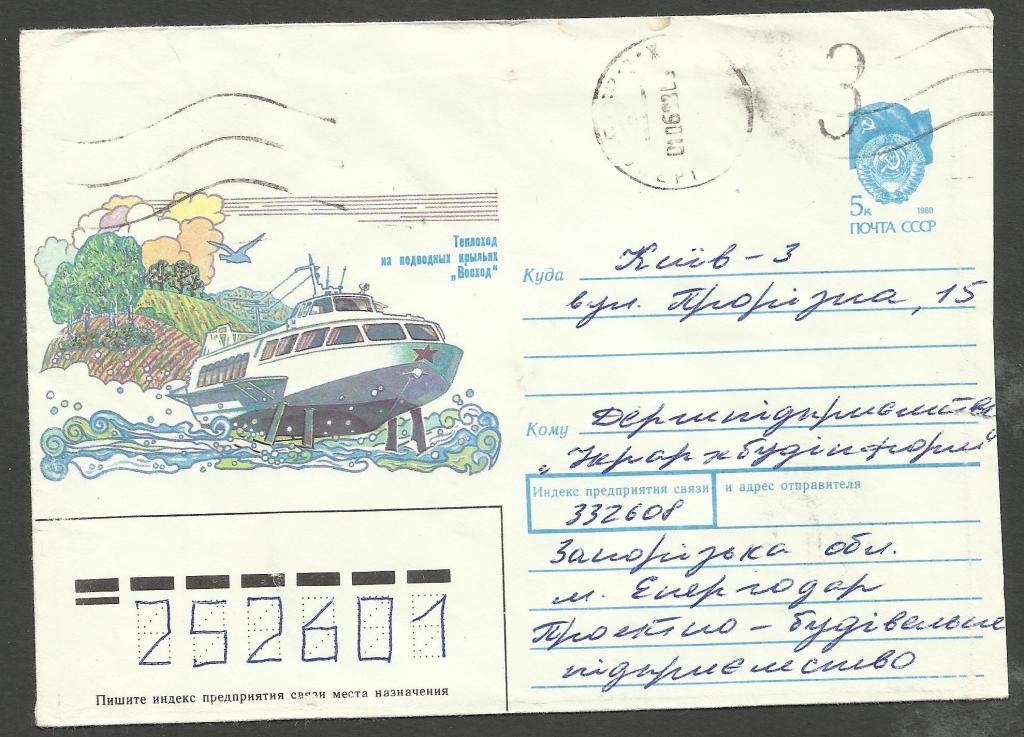 3
5к 1988
ПОЧТА СССР
Теплоход
на подводных крыльях
„Восход"
Куда Київ - 3
вул. Прорізна, 15
Кому Держпідприємство
„Укрархбудінформ"
Индекс предприятия связи и адрес отправителя
332608
Запорізька обл.
м. Енергодар
Проектно - будівельне
підприємство
252601
Пишите индекс предприятия связи места назначения